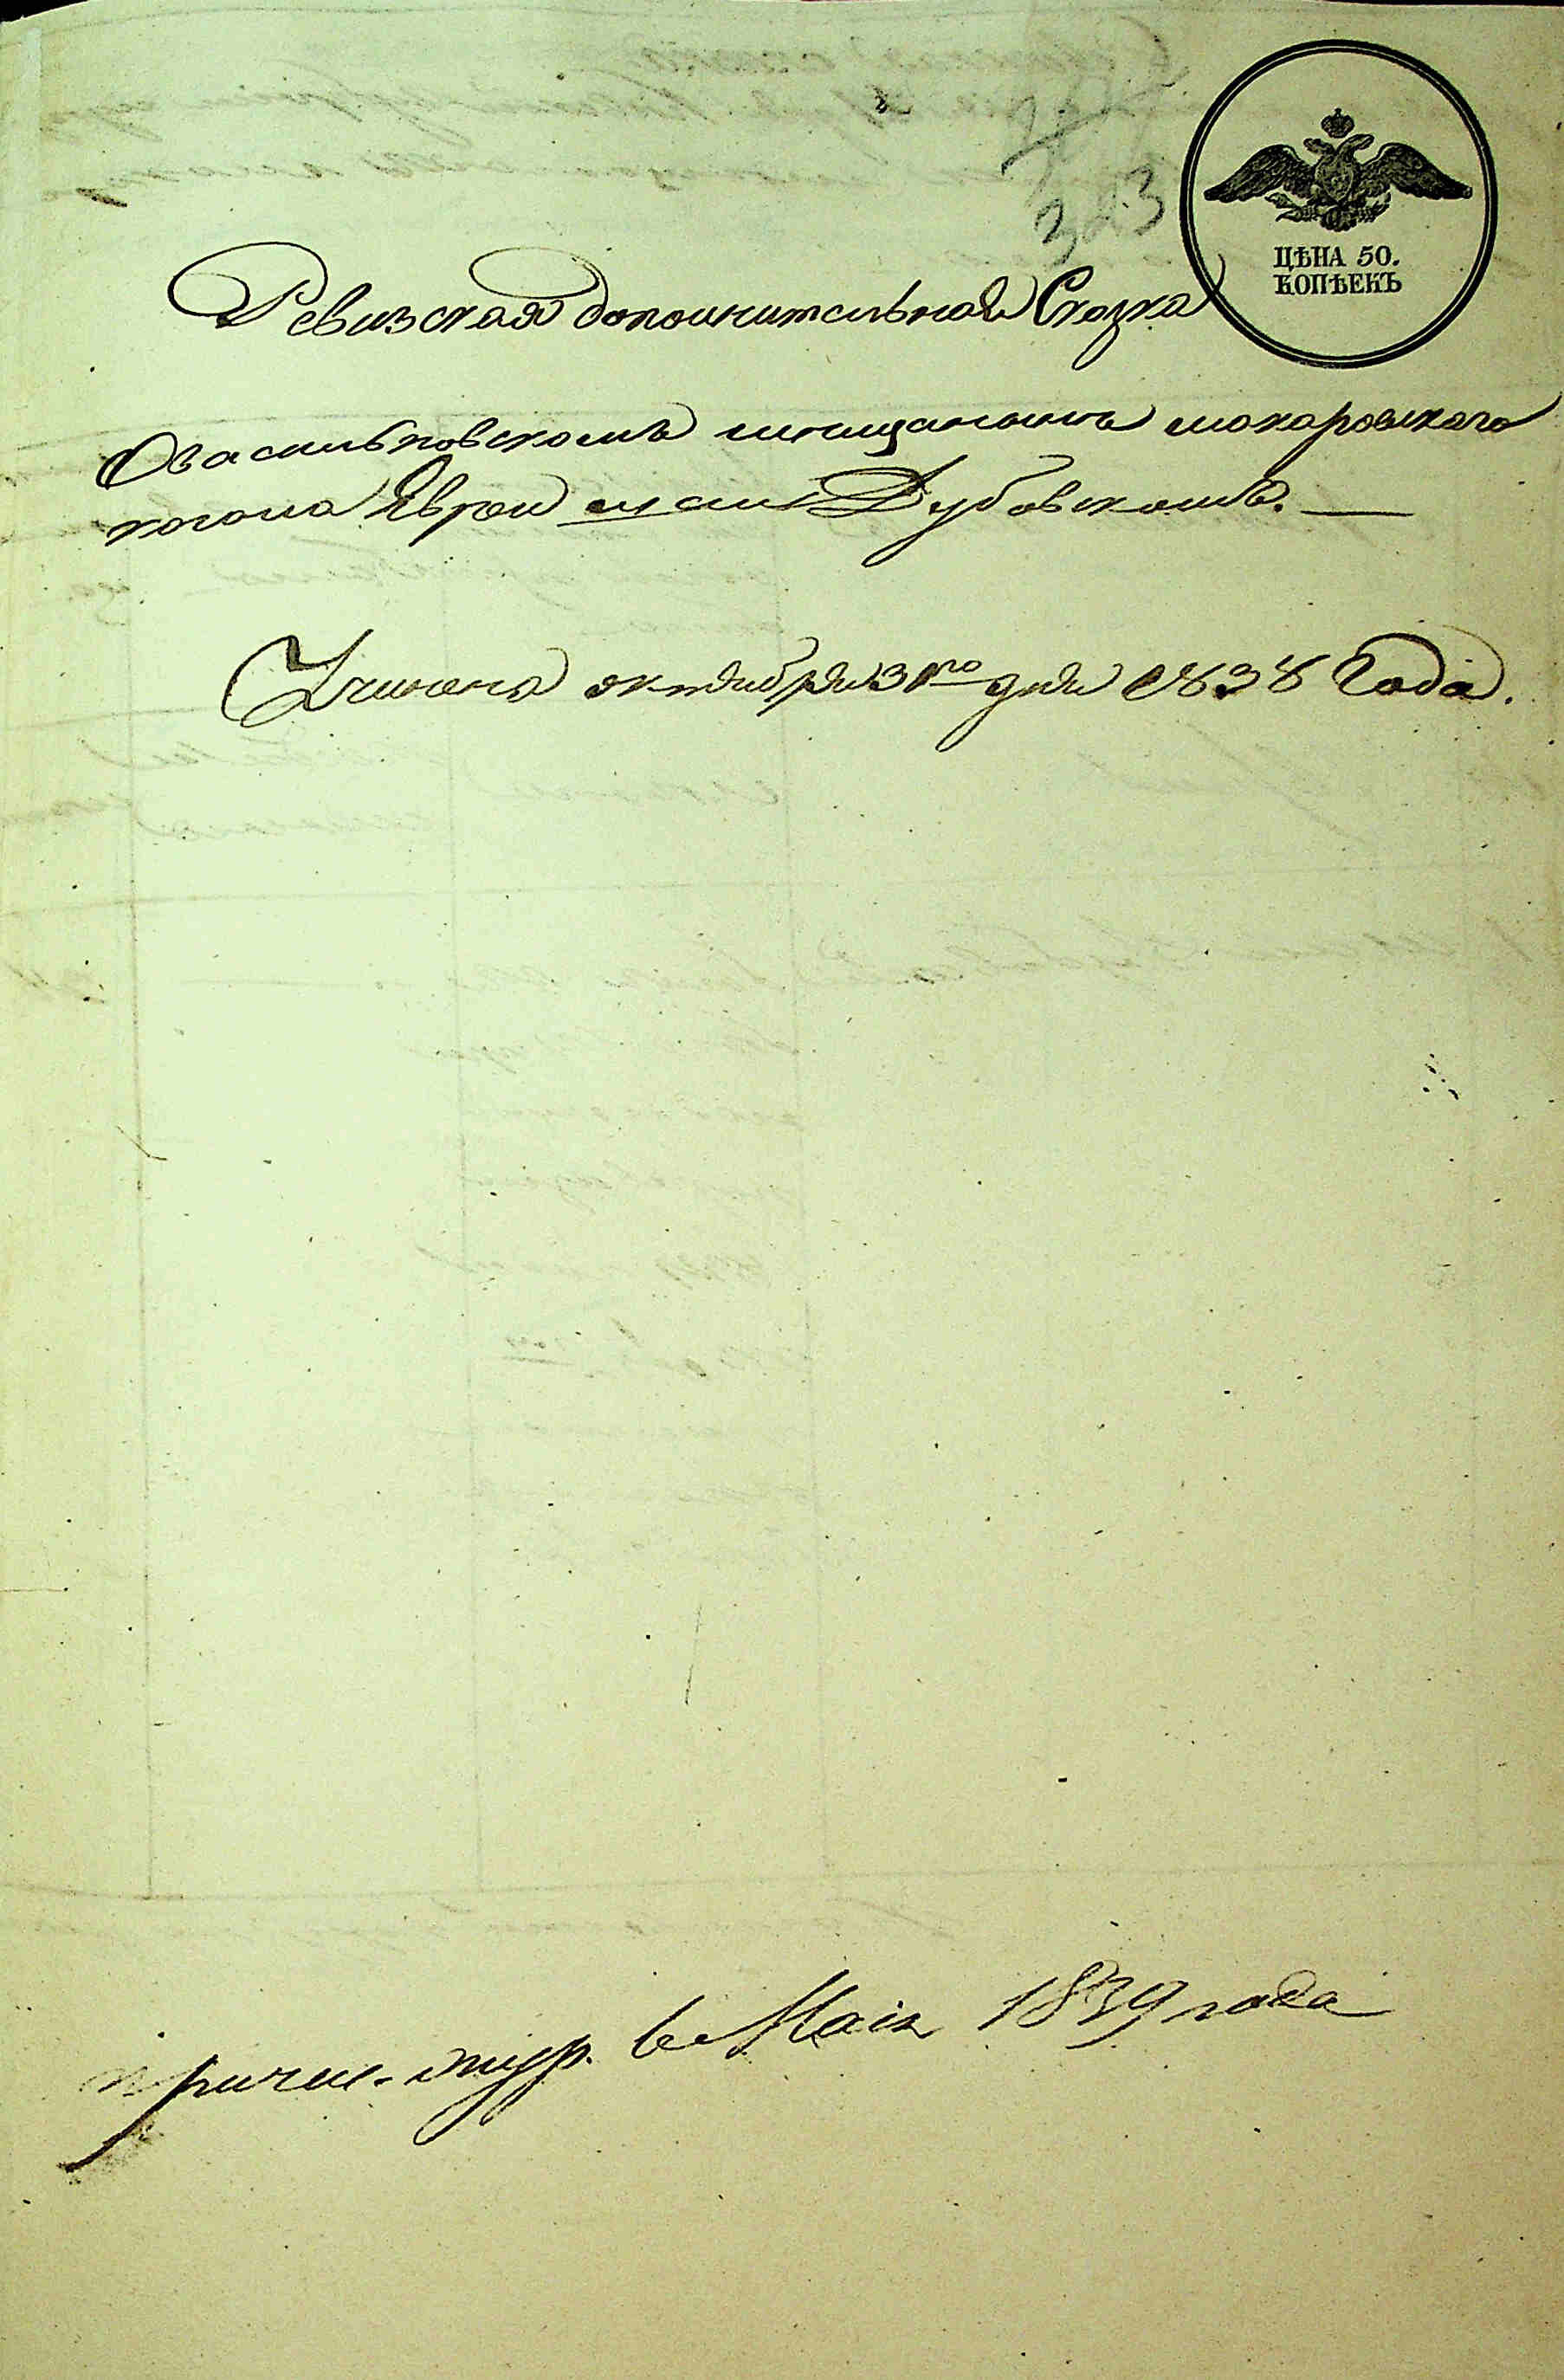 323
ЦѢНА 50.
КОПѢЕКЪ
Ревизская дополнительная Сказка
О васильковскомъ мещанине макаровскаго
кагала Еврея Дубовскомъ.
Учинена октября 31го дня 1838 Года.
въ Маіи 1839 года